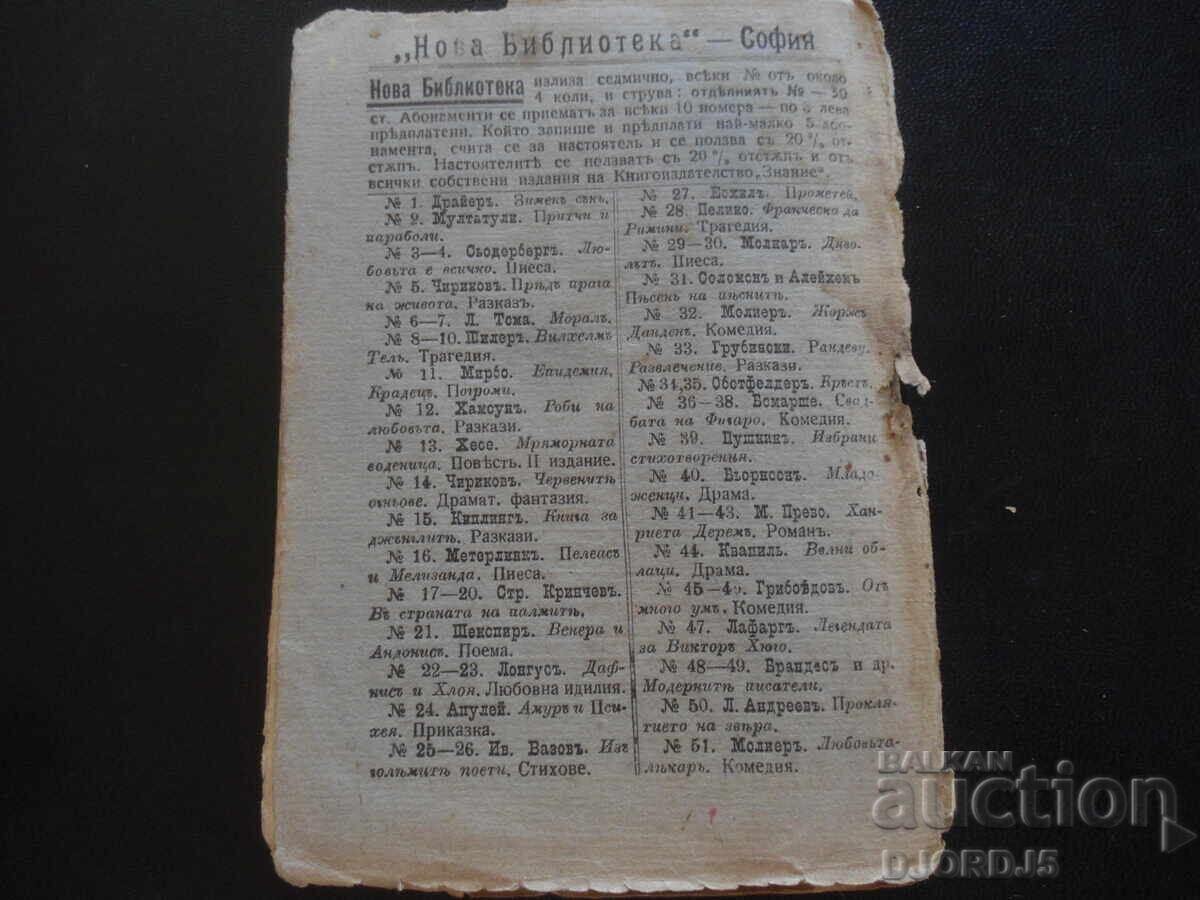 „Нова Библиотека“ — София
Нова Библиотека излиза седмично, всѣки № отъ около
4 коли, и струва: отдѣлниятъ № — 30
ст. Абонаменти се приематъ за всѣки 10 номера — по 3 лева
прѣдплатени. Който запише и прѣдплати най-малко 5 або-
намента, счита се за настоятель и се ползва съ 20 % от-
стѫпъ. Настоятелитѣ се ползватъ съ 20 % отстѫпъ и отъ
всички собствени издания на Книгоиздателство „Знание“.
№ 1. Драйеръ. Зименъ сънъ.
№ 2. Мултатули. Притчи и
параболи.
№ 3—4. Сьодербергъ. Лю-
бовьта е всичко. Пиеса.
№ 5. Чириковъ. Прѣдъ прага
на живота. Разказъ.
№ 6—7. Л. Тома. Моралъ.
№ 8—10. Шилеръ. Вилхелмъ
Тель. Трагедия.
№ 11. Мирбо. Епидемия,
Крадецъ. Погроми.
№ 12. Хамсунъ. Роби на
любовьта. Разкази.
№ 13. Хесе. Мряморната
воденица. Повѣсть. II издание.
№ 14. Чириковъ. Червенитѣ
огньове. Драмат. фантазия.
№ 15. Киплингъ. Книга за
джънглитѣ. Разкази.
№ 16. Метерлинкъ. Пелеасъ
и Мелизанда. Пиеса.
№ 17—20. Стр. Кринчевъ.
Въ страната на палмитѣ.
№ 21. Шекспиръ. Венера и
Андонисъ. Поема.
№ 22—23. Лонгусъ. Даф-
нисъ и Хлоя. Любовна идилия.
№ 24. Апулей. Амуръ и Пси-
хея. Приказка.
№ 25—26. Ив. Вазовъ. Изъ
голѣмитѣ поети. Стихове.
№ 27. Есхилъ. Прометей.
№ 28. Пелико. Франческо да
Римини. Трагедия.
№ 29—30. Молнаръ. Дяво-
лътъ. Пиеса.
№ 31. Соломонъ и Алейхемъ
Пѣсень на пѣснитѣ.
№ 32. Молиеръ. Жоржъ
Данденъ. Комедия.
№ 33. Грубински. Рандеву.
Развлечение. Разкази.
№ 34,35. Обстфелдеръ. Кръстъ.
№ 36—38. Бомарше. Сват-
бата на Фигаро. Комедия.
№ 39. Пушкинъ. Избрани
стихотворения.
№ 40. Бьорнсонъ. Младо-
женци. Драма.
№ 41—43. М. Прево. Хан-
риета Деремъ. Романъ.
№ 44. Квапилъ. Велни об-
лаци. Драма.
№ 45—46. Грибоѣдовъ. Отъ
много умъ. Комедия.
№ 47. Лафаргъ. Легендата
за Викторъ Хюго.
№ 48—49. Брандесъ и др.
Модернитѣ писатели.
№ 50. Л. Андреевъ. Прокля-
тието на звѣра.
№ 51. Молиеръ. Любовьта-
лѣкаръ. Комедия.
BALKAN
auction
DJORDJ5